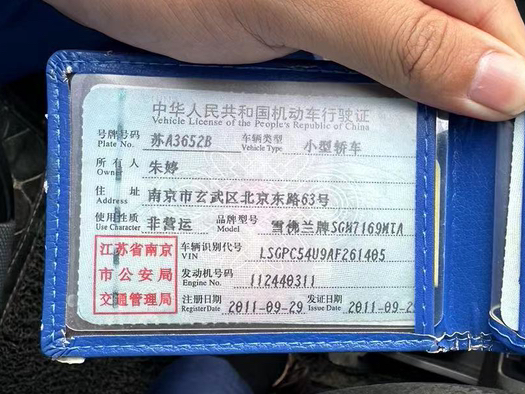 中华人民共和国机动车行驶证
Vehicle License of the People's Republic of China
号牌号码 Plate No. 苏A3652B 车辆类型 Vehicle Type 小型轿车
所有人 Owner 朱婷
住址 Address 南京市玄武区北京东路63号
使用性质 Use Character 非营运 品牌型号 Model 雪佛兰牌SGM7169MTA
江苏省南京 车辆识别代号 VIN LSGPC54U9AF261405
市公安局 发动机号码 Engine No. 112440311
交通管理局 注册日期 Register Date 2011-09-29 发证日期 Issue Date 2011-09-2